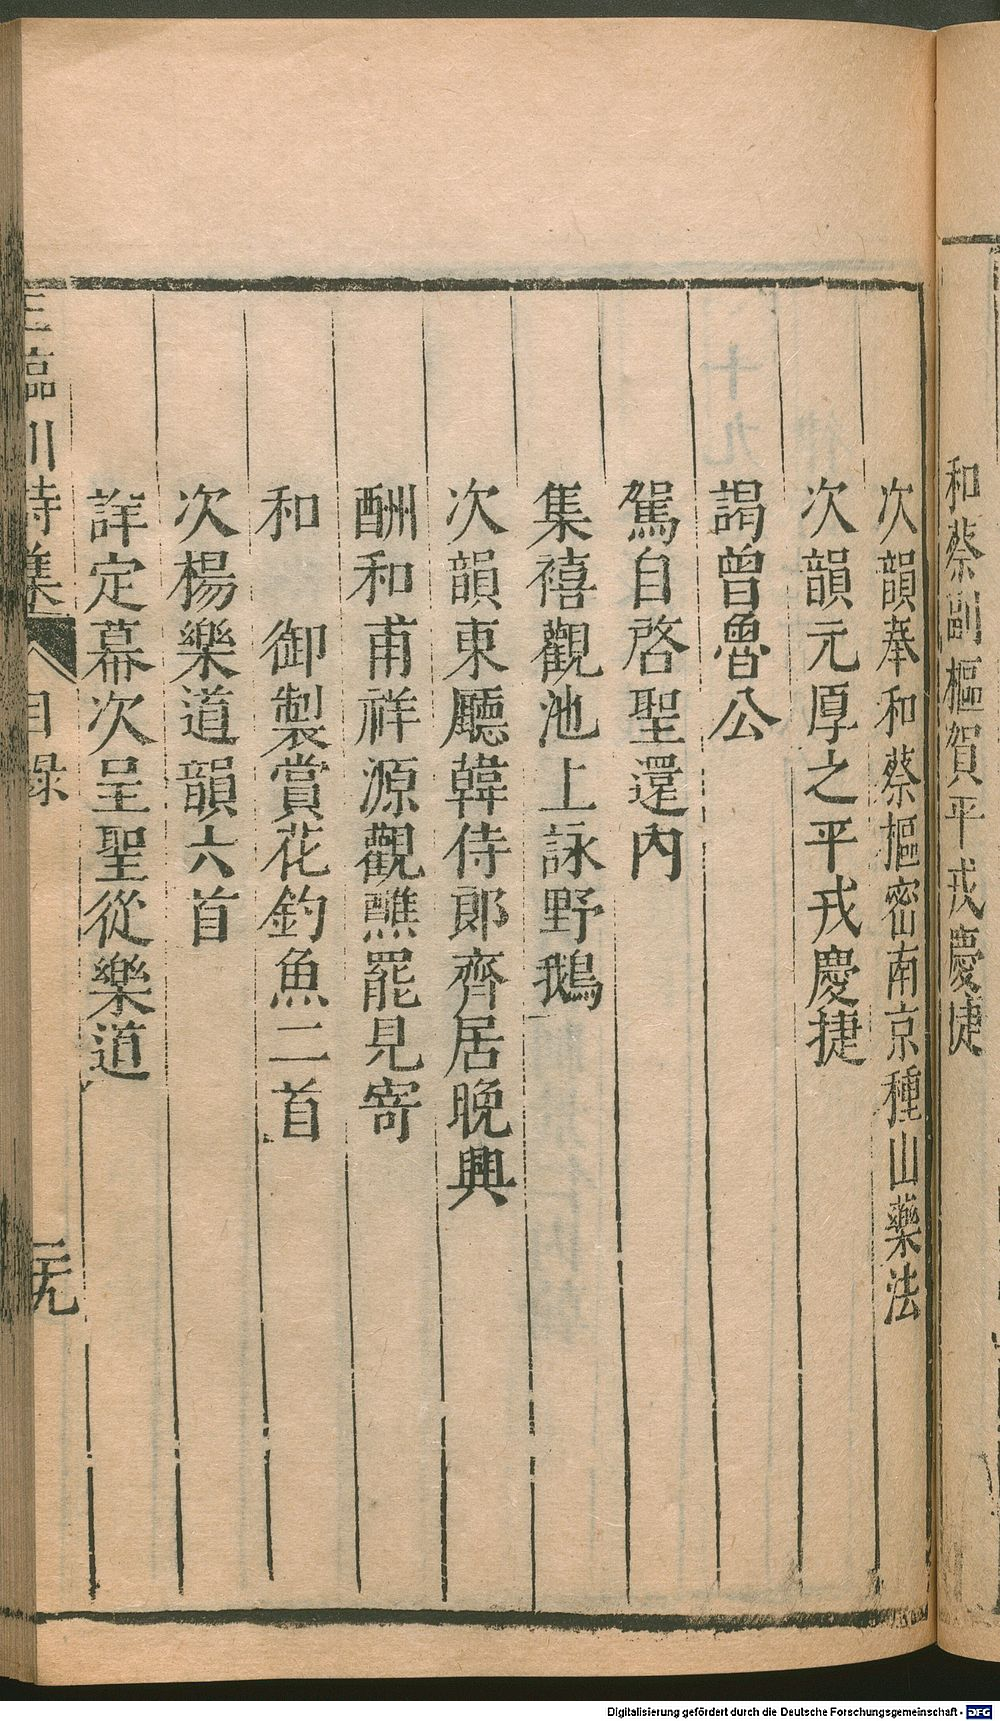 和蔡副樞賀平戎慶捷
次韻奉和蔡樞密南京種山藥法
次韻元厚之平戎慶捷
謁曾魯公
駕自啓聖還內
集禧觀池上詠野鵝
次韻東廳韓侍郎齊居晚興
酬和甫祥源觀醮罷見寄
和　御製賞花釣魚二首
次楊樂道韻六首
詳定幕次呈聖從樂道
王臨川詩集　目録　
Digitalisierung gefördert durch die Deutsche Forschungsgemeinschaft - DFG